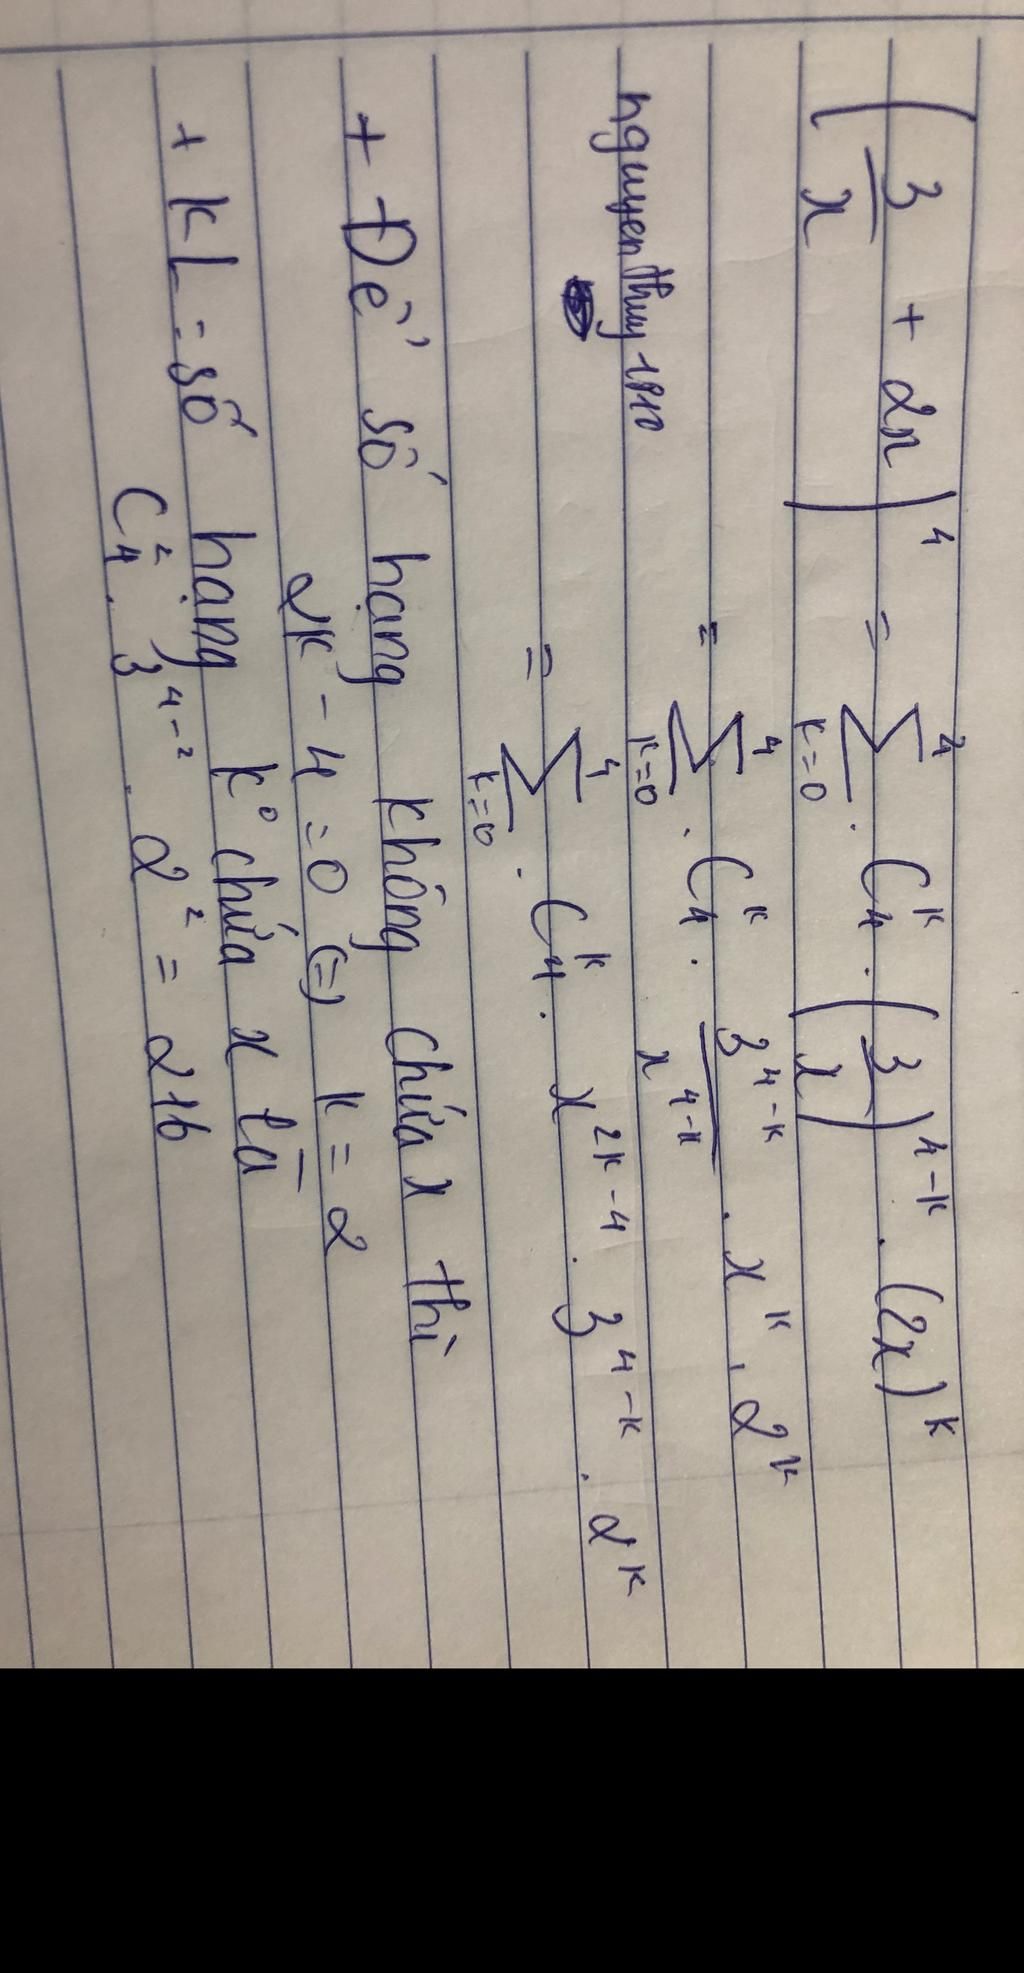 ( 3/x + 2x )⁴ = ∑ₖ₌₀⁴ . C₄ᵏ . ( 3/x )⁴⁻ᵏ . (2x)ᵏ
= ∑ₖ₌₀⁴ . C₄ᵏ . 3⁴⁻ᵏ/x⁴⁻ᵏ . xᵏ . 2ᵏ
nguyenthuy1810
= ∑ₖ₌₀⁴ . C₄ᵏ . x²ᵏ⁻⁴ . 3⁴⁻ᵏ . 2ᵏ
+ Để số hạng không chứa x thì
2k - 4 = 0 (=) k = 2
+ KL = số hạng k° chứa x là
C₄² . 3⁴⁻² . 2² = 216